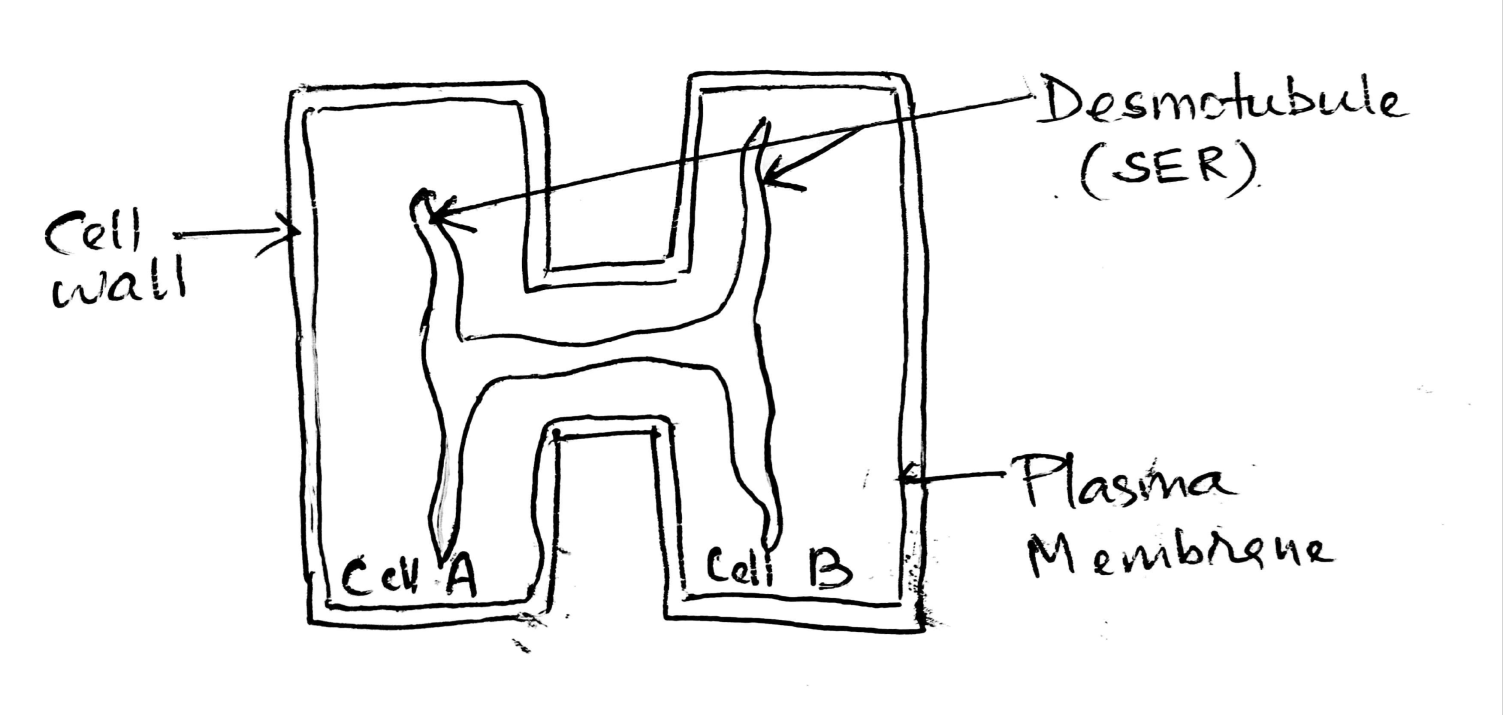 Desmotubule
(SER).
Cell
wall
Plasma
Membrane
Cell A
Cell B